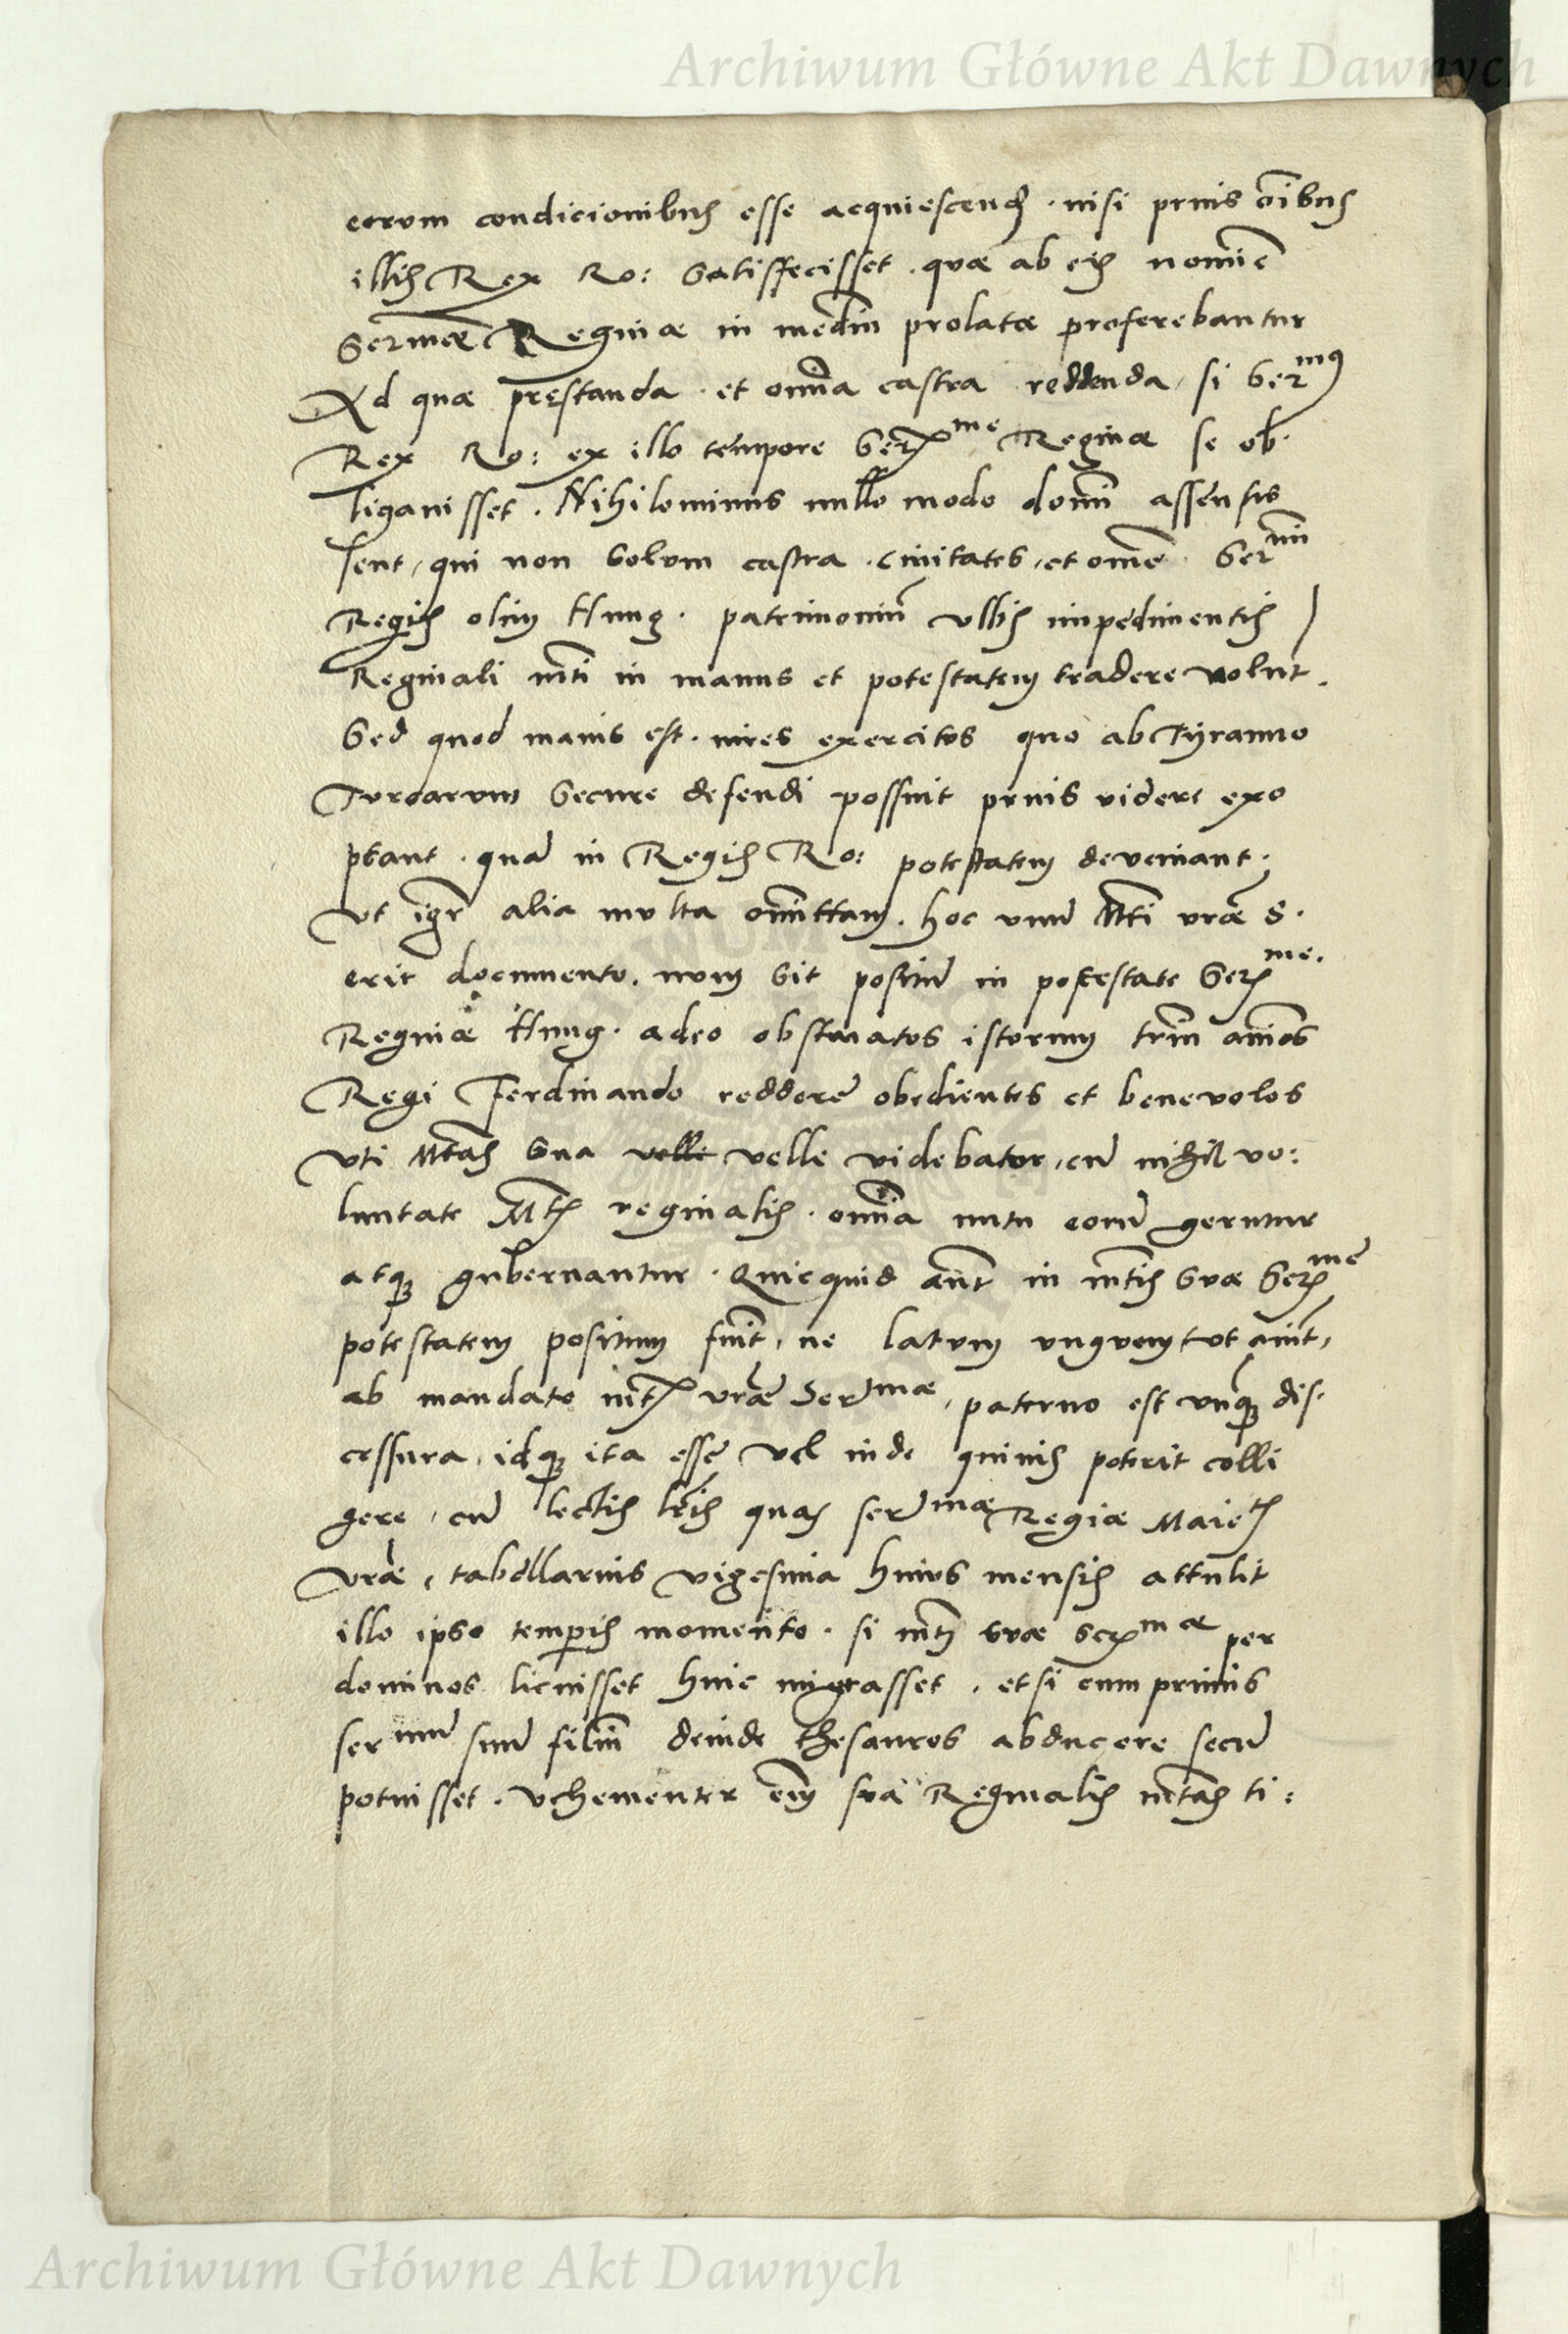 Archiwum Główne Akt Dawnych
eorum condicionibus esse acquiescend. nisi prius o̅ibus
illis Rex Ro: satisfecisset. quæ ab eis nomi̅e
Sermæ Reginæ in mediu̅ prolatæ proferebantur
Ad quæ præstanda. et om̅ia castra reddenda, si Ser^mus
Rex Ro: ex illo tempore Ser^me Reginæ se ob.
ligavisset. Nihilominus nullo modo domi̅ assensis
sent, qui non solum castra. civitates, et om̅e. Ser^mi
Regis olim Hung. patrimoniu̅ ullis impedimentis
Reginali m̅ti in manus et potestatem tradere volu̅t.
Sed quod maius est. vires exercitus quo ab Tyranno
Turcarum secure defendi possint prius videre exo
ptant. qua̅ in Regis Ro: potestatem deveniant.
Ut ig̅r alia multa omittam. hoc unu̅ M̅ti vr̅æ S.
erit documento. num sit positu̅ in potestate Ser^me.
Reginæ Hung. adeo obstinatos istorum tr̅m animos
Regi Ferdinando reddere obedientes et benevolos
uti M̅tas sua velle velle videbatur, cu̅ nihil vo:
luntate M̅tis reginalis. om̅ia nutu eoru̅ geru̅tur
atq̷ gubernantur. Quicquid au̅t in m̅tis suæ Ser^me
potestatem positum fuit, ne latum unguem, ut aiu̅t,
ab mandato m̅tis vr̅æ Ser^mæ, paterno est unq̷ dis.
cessura, idq̷ ita esse vel inde quivis poterit colli
gere, cu̅ lectis lr̅is quas ser^mæ Regiæ Maie^tis
vr̅æ, tabellarius vigesima huius mensis attulit
illo ipso temporis momento. si m̅ti suæ ser^mæ per
dominos licuisset huic migrasset, etsi cum primis
ser^mu̅ suu̅ filiu̅ deinde thesauros abducere secu̅
potuisset. vehementer eni̅ sua Reginalis m̅tas ti:
Archiwum Główne Akt Dawnych